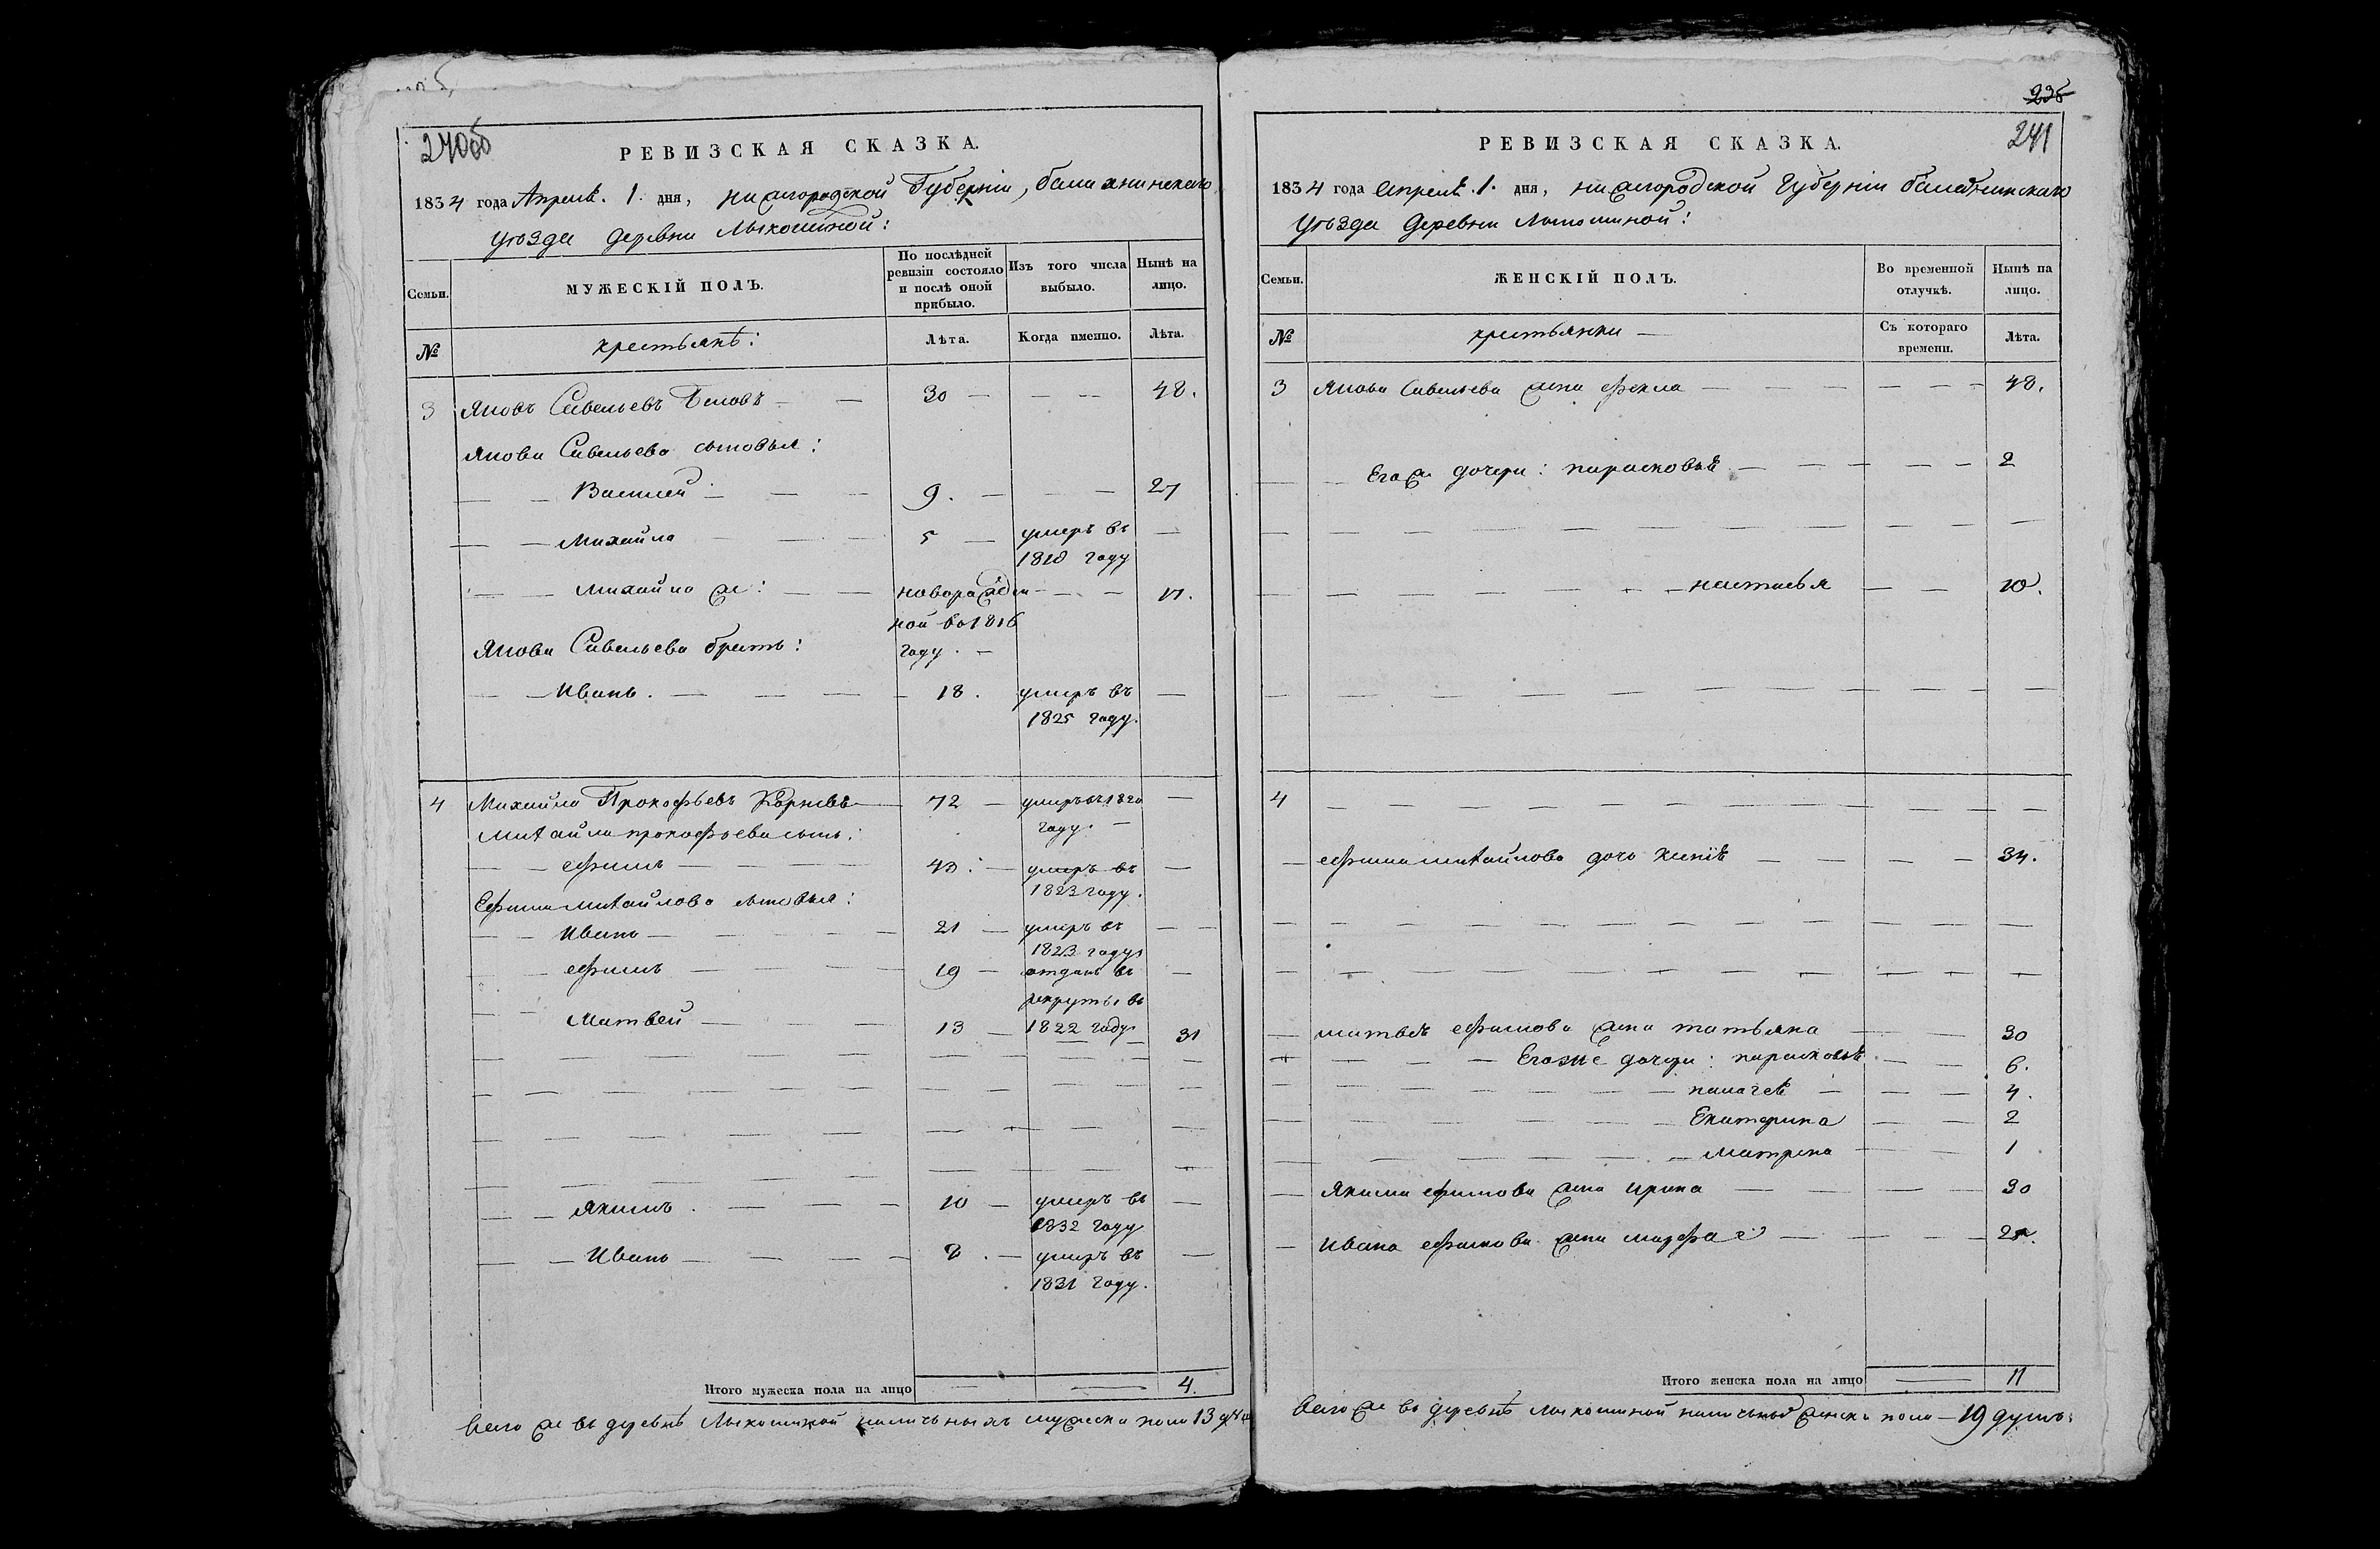 240об
РЕВИЗСКАЯ СКАЗКА.
1834 года Апреля. 1. дня, нижегородской Губерніи, балахнинскаго
уезда деревни Лыкошиной:
Семьи.
МУЖЕСКІЙ ПОЛЪ.
По послѣдней ревизіи состояло и послѣ оной прибыло.
Изъ того числа выбыло.
Нынѣ на лицо.
№
крестьянѣ:
Лѣта.
Когда имянно.
Лѣта.
3 Яковъ Савельевъ Беловъ — — 30 — — — 48.
Якова Савельева сыновья:
— — Василей — — 9. — — — 27
— — Михайла — — 5 — умеръ въ —
1818 году
— — Михайла же: — — новорожден — — 17.
ной во 1816
году. —
Якова Савельева братъ:
— — Иванъ. — — — 18. умеръ въ —
1825 году.
4 Михайла Прокофьевъ — 72 — умеръ въ 1820 —
году. —
Михайла прокофьева сынъ:
— — ефимъ — — — 43. — умеръ въ —
1823 году.
Ефима михайлова сыновья:
— — Иванъ — — — 21 — умеръ въ — —
1823 году
— — ефимъ — — — 19 — отданъ въ —
рекруты въ
1822 году
— — Матвей — — — 13 — 31
— — Якимъ. — — — 10 — умеръ въ —
1832 году
— — Иванъ — — — 8. — умеръ въ —
1831 году.
Итого мужеска пола на лицо — — 4.
Всего же въ деревнѣ Лыкошиной наличныхъ мужеска пола 13
236
241
РЕВИЗСКАЯ СКАЗКА.
1834 года апреля. 1. дня, нижегородской Губерніи балахнинскаго
уезда деревни Лыкошиной:
Семьи.
ЖЕНСКІЙ ПОЛЪ.
Во временной отлучкѣ.
Нынѣ на лицо.
№
крестьянки —
Съ котораго времени.
Лѣта.
3 Якова Савельева жена фекла — — — — — — 48.
Егоже дочери: парасковья — — — — — 2
— — — — — настасья — — 10.
4 — — — — — — — — — —
— ефима михайлова дочь — — — — 34.
— матвея ефимова жена татьяна — — 30
— — — Егоже дочери: парасковья — — 6.
— — — — — палагея — — — 4.
— — — — — Екатерина — — 2
— — — — — матрена — — 1
— Якима ефимова жена ирина — — — — 30
— ивана ефимова жена марфа — — — —
Итого женска пола на лицо — 11
Всего же въ деревнѣ лыкошиной женска пола — 19 душъ: